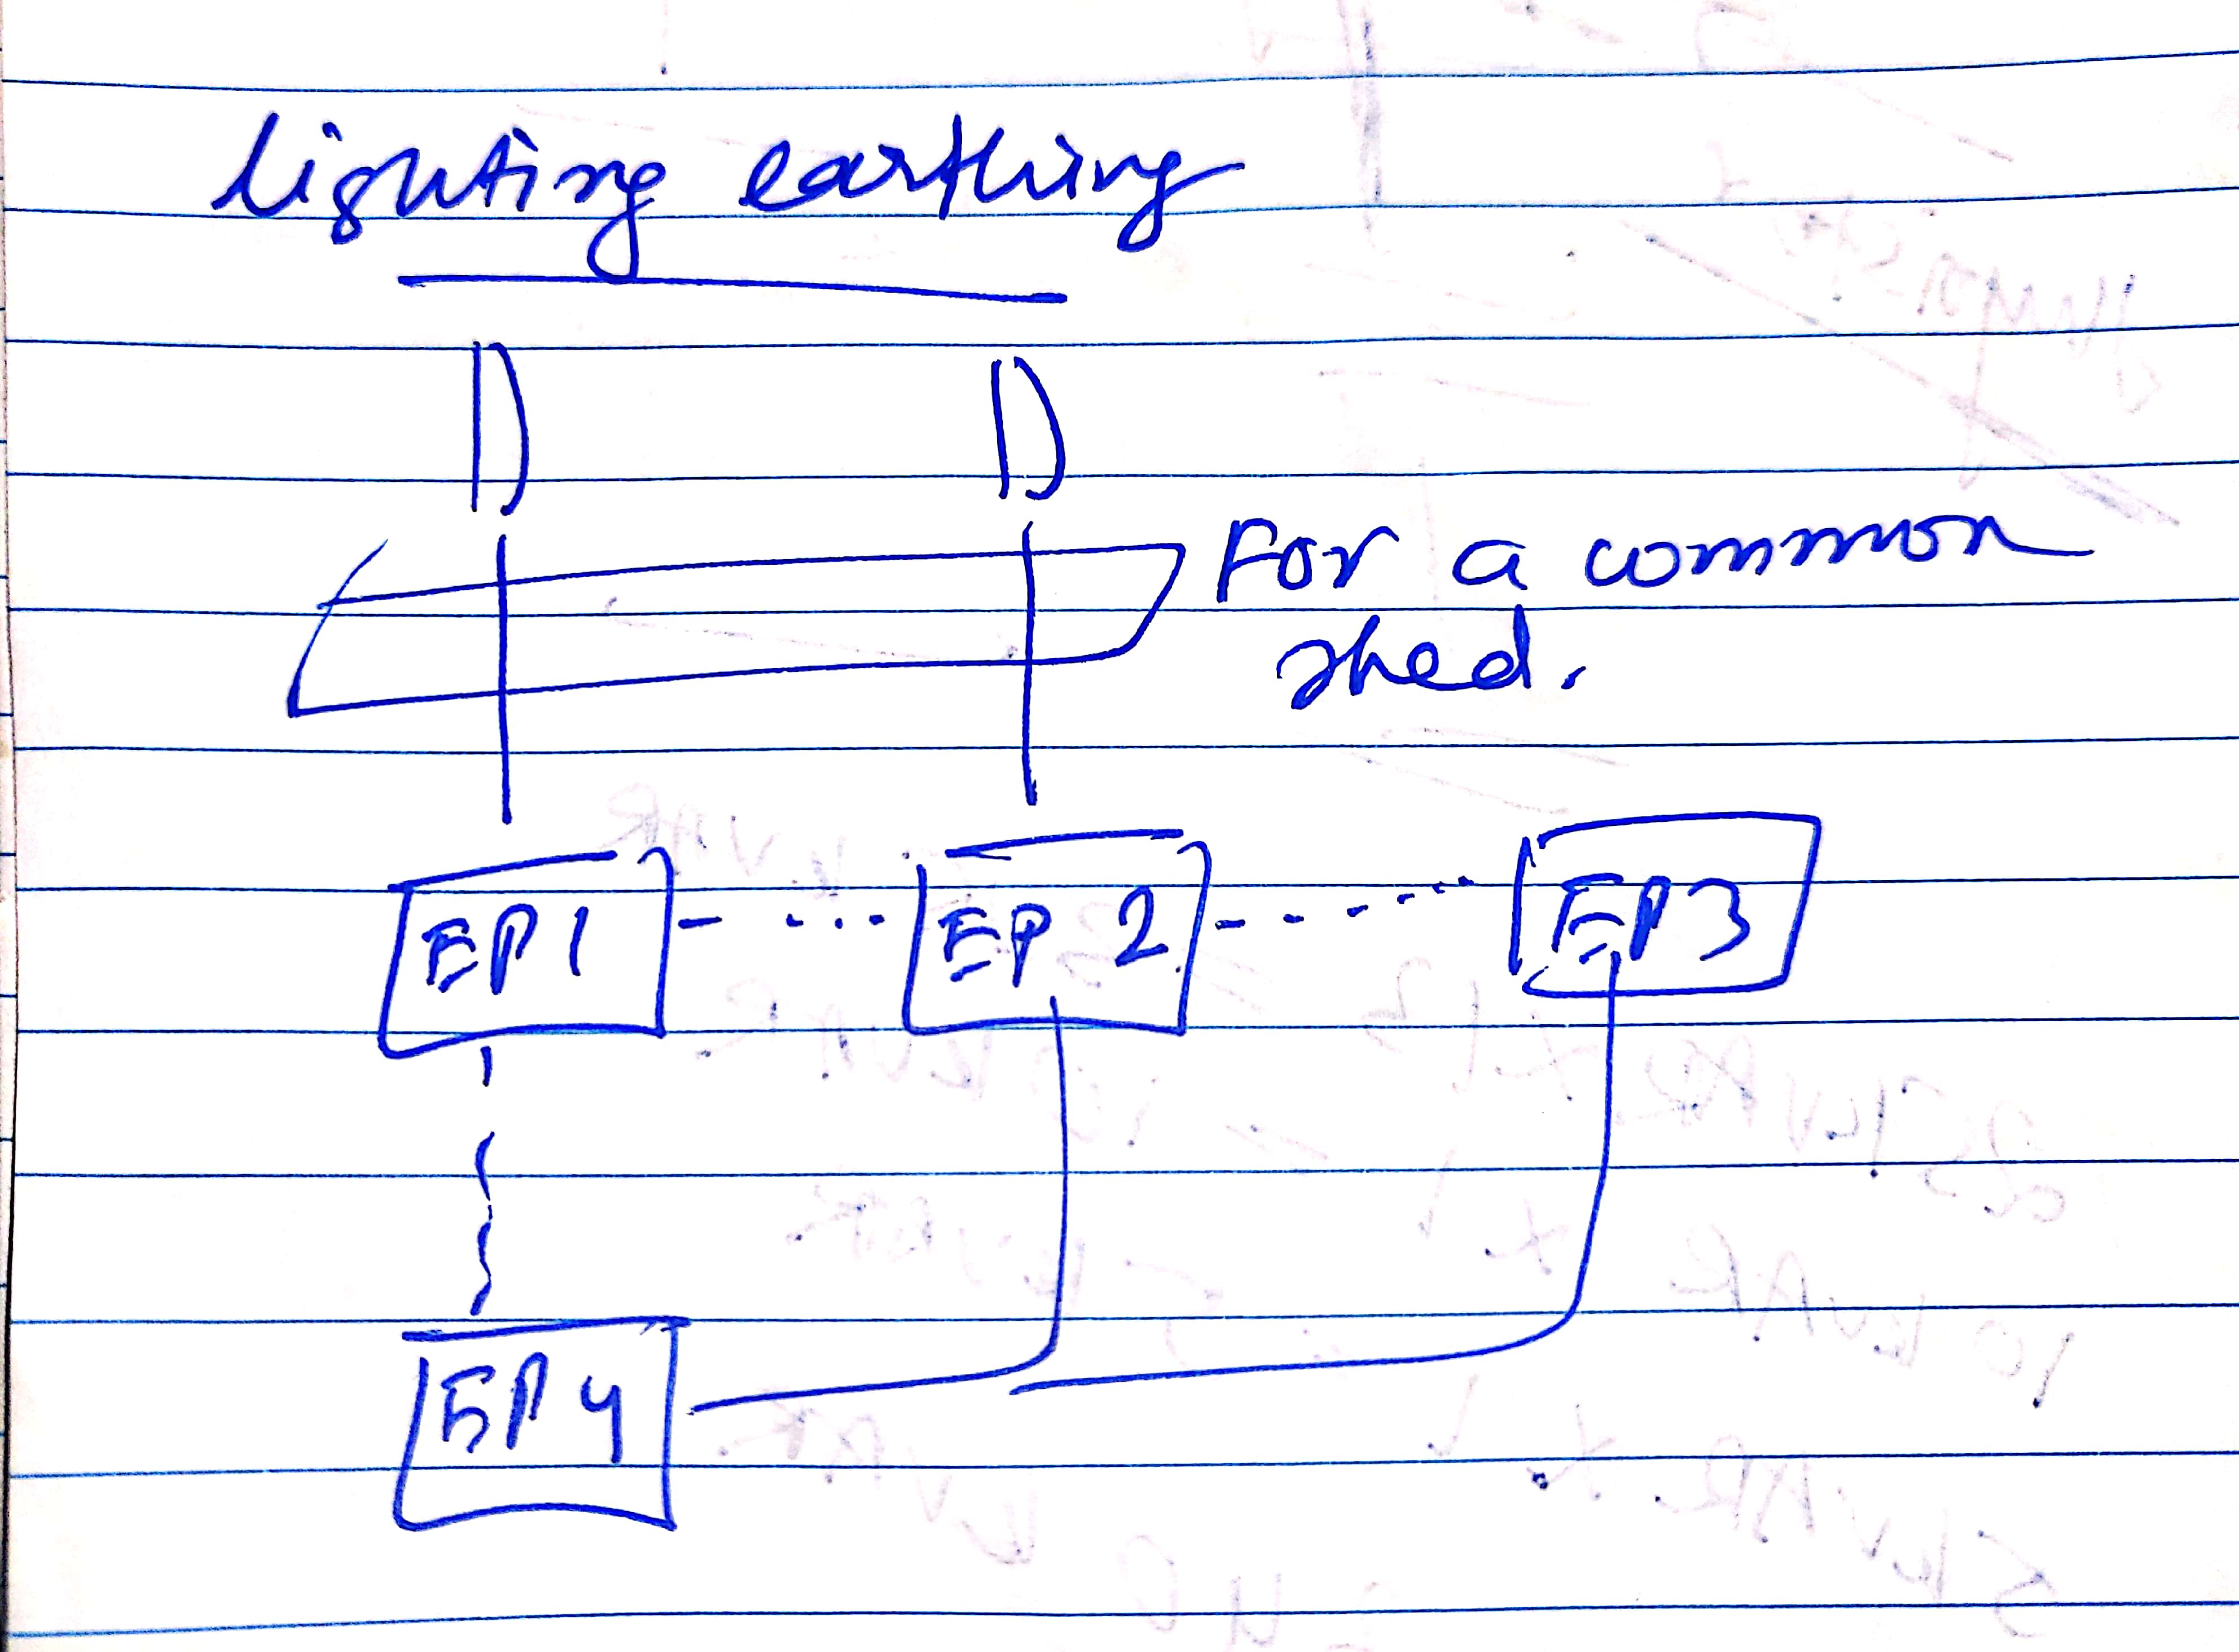 lighting earthing
D D
For a common
shed.
EP1 EP 2 EP3
EP4